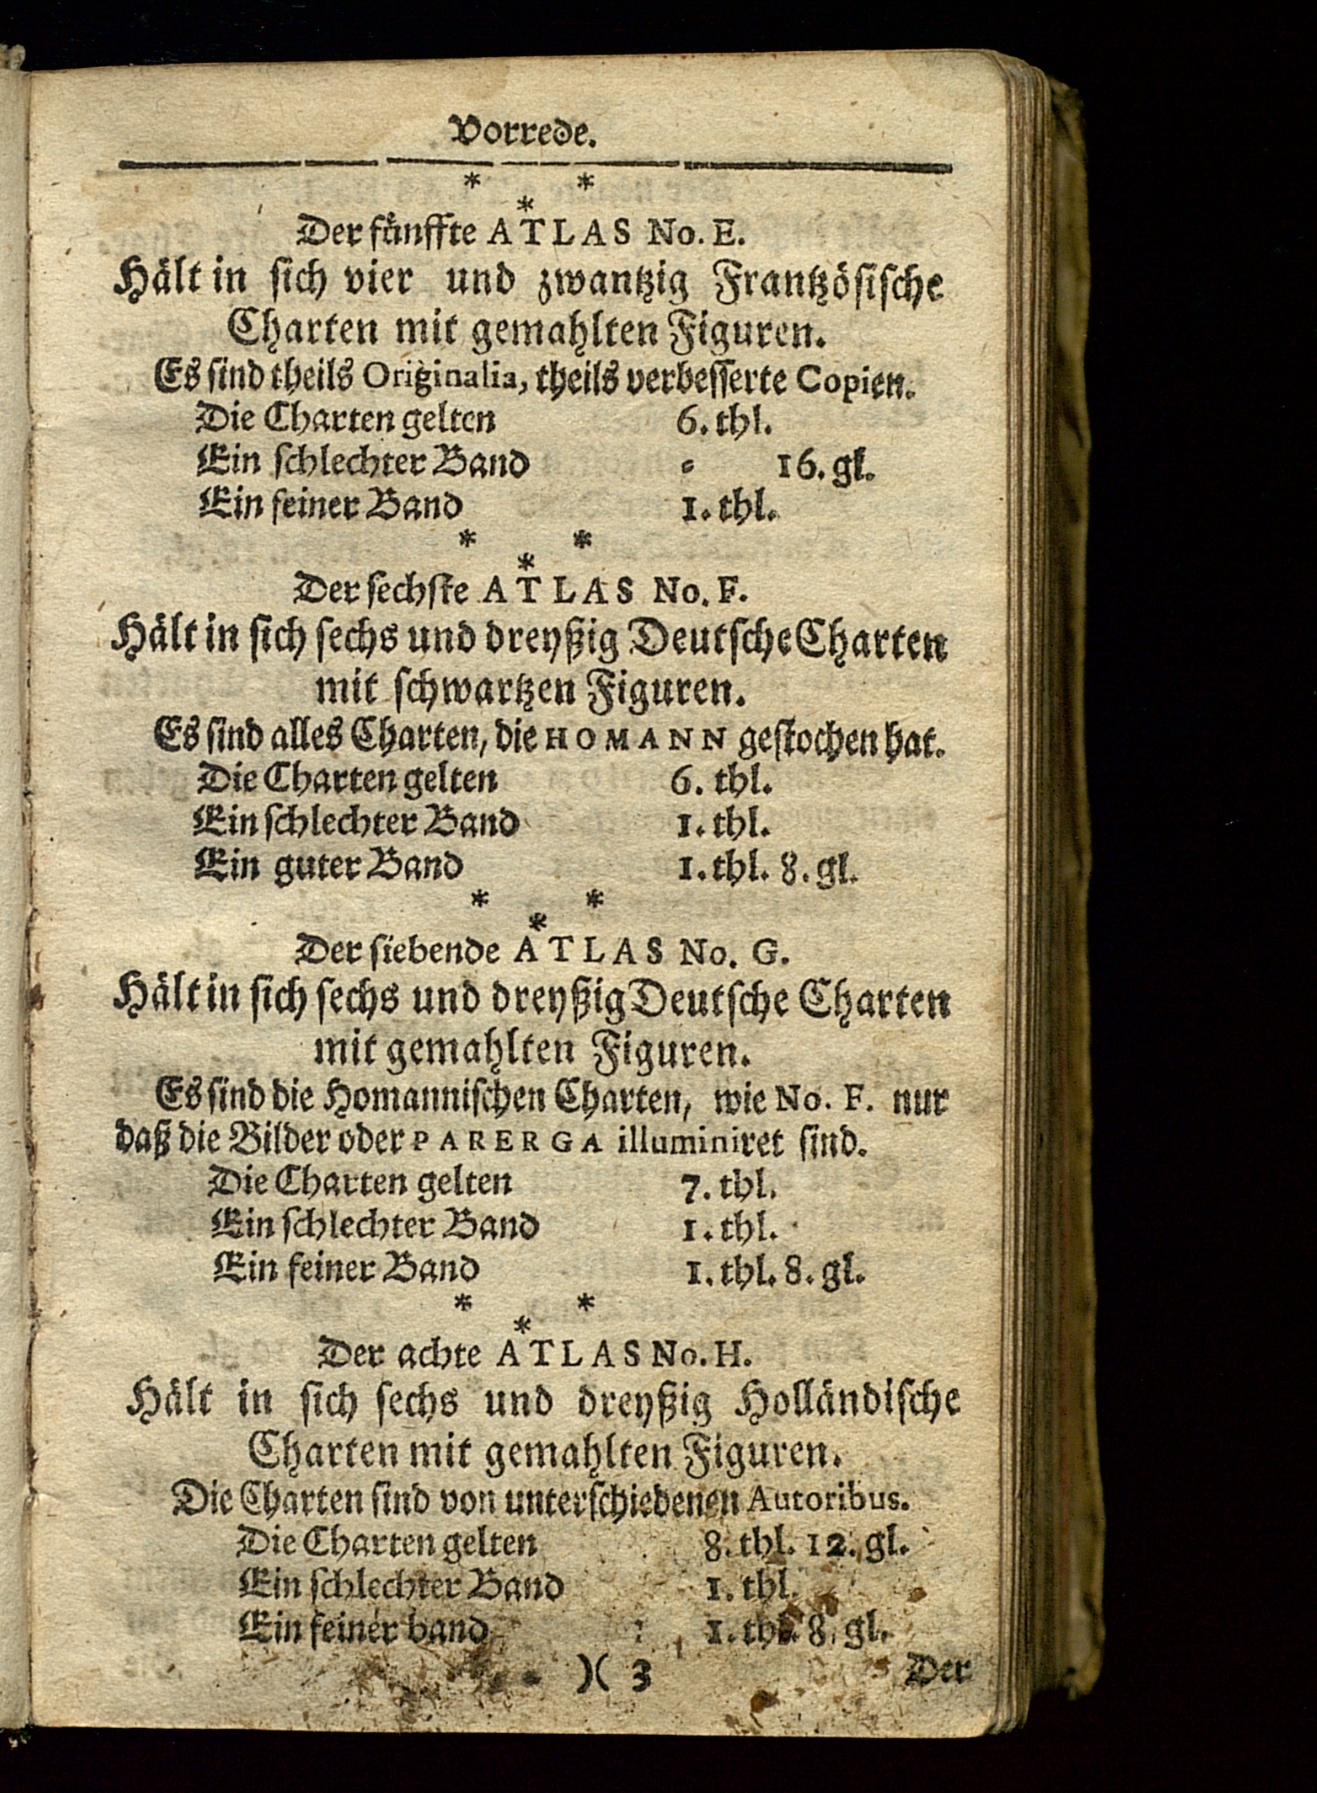 Vorrede.
* * *
Der fünffte ATLAS No. E.
Hält in sich vier und zwantzig Frantzösische
Charten mit gemahlten Figuren.
Es sind theils Originalia, theils verbesserte Copien.
Die Charten gelten 6. thl.
Ein schlechter Band = 16. gl.
Ein feiner Band 1. thl.
* * *
Der sechste ATLAS No. F.
Hält in sich sechs und dreyßig Deutsche Charten
mit schwartzen Figuren.
Es sind alles Charten, die HOMANN gestochen hat.
Die Charten gelten 6. thl.
Ein schlechter Band 1. thl.
Ein guter Band 1. thl. 8. gl.
* * *
Der siebende ATLAS No. G.
Hält in sich sechs und dreyßig Deutsche Charten
mit gemahlten Figuren.
Es sind die Homannischen Charten, wie No. F. nur
daß die Bilder oder PARERGA illuminiret sind.
Die Charten gelten 7. thl.
Ein schlechter Band 1. thl.
Ein feiner Band 1. thl. 8. gl.
* * *
Der achte ATLAS No. H.
Hält in sich sechs und dreyßig Holländische
Charten mit gemahlten Figuren.
Die Charten sind von unterschiedenen Autoribus.
Die Charten gelten 8. thl. 12. gl.
Ein schlechter Band 1. thl.
Ein feiner band : 1. thl. 8. gl.
)( 3 Der